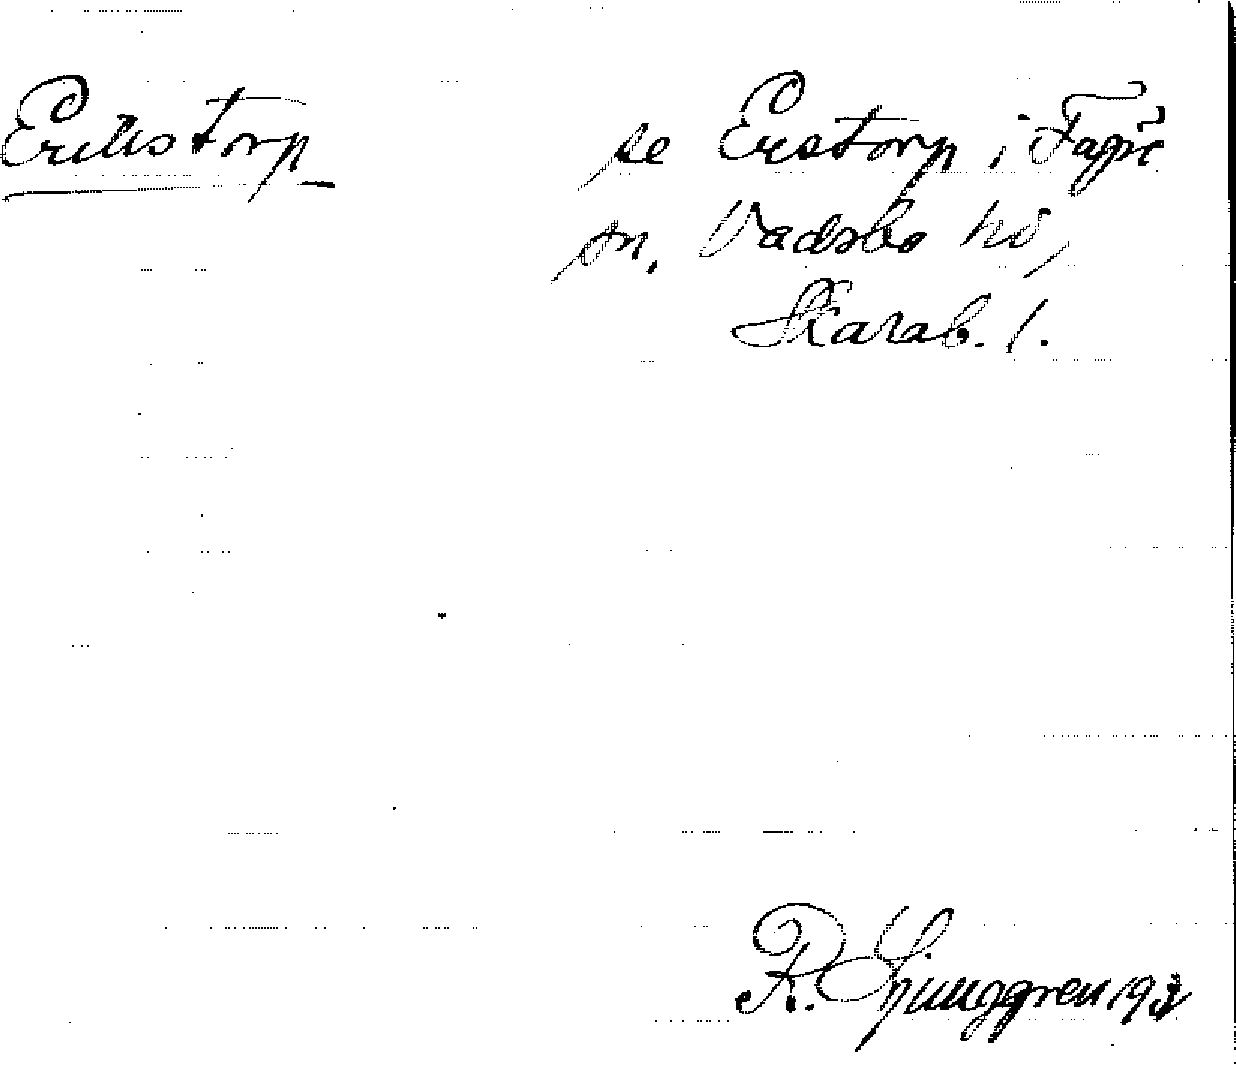 Erikstorp
se Erstorp i Fägre
sn. Vadsbo hd,
Skarab. l.
R. Ljunggren